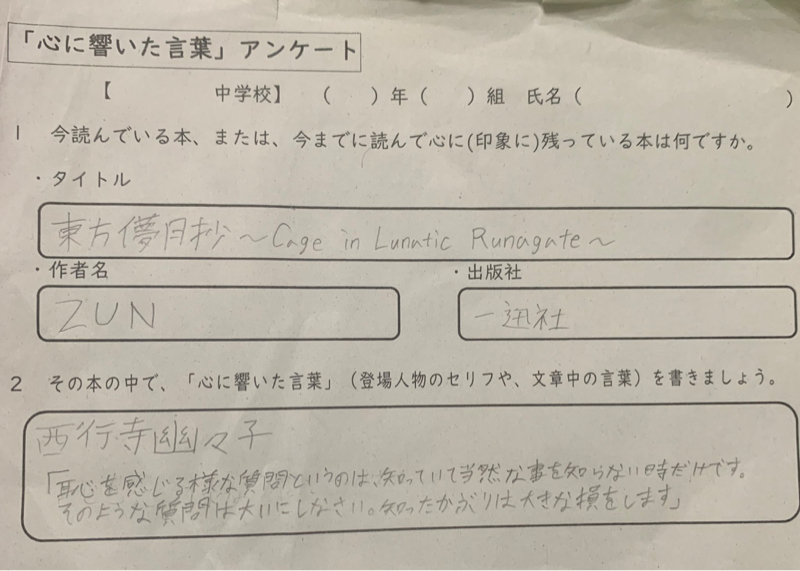 「心に響いた言葉」アンケート
【 中学校】 ( )年( )組 氏名( )
1 今読んでいる本、または、今までに読んで心に(印象に)残っている本は何ですか。
・タイトル
東方儚月抄～Cage in Lunatic Runagate～
・作者名 ・出版社
ZUN 一迅社
2 その本の中で、「心に響いた言葉」(登場人物のセリフや、文章中の言葉)を書きましょう。
西行寺幽々子
「恥を感じる様な質問というのは、知っていて当然な事を知らない時だけです。
そのような質問は大いにしなさい。知ったかぶりは大きな損をします」